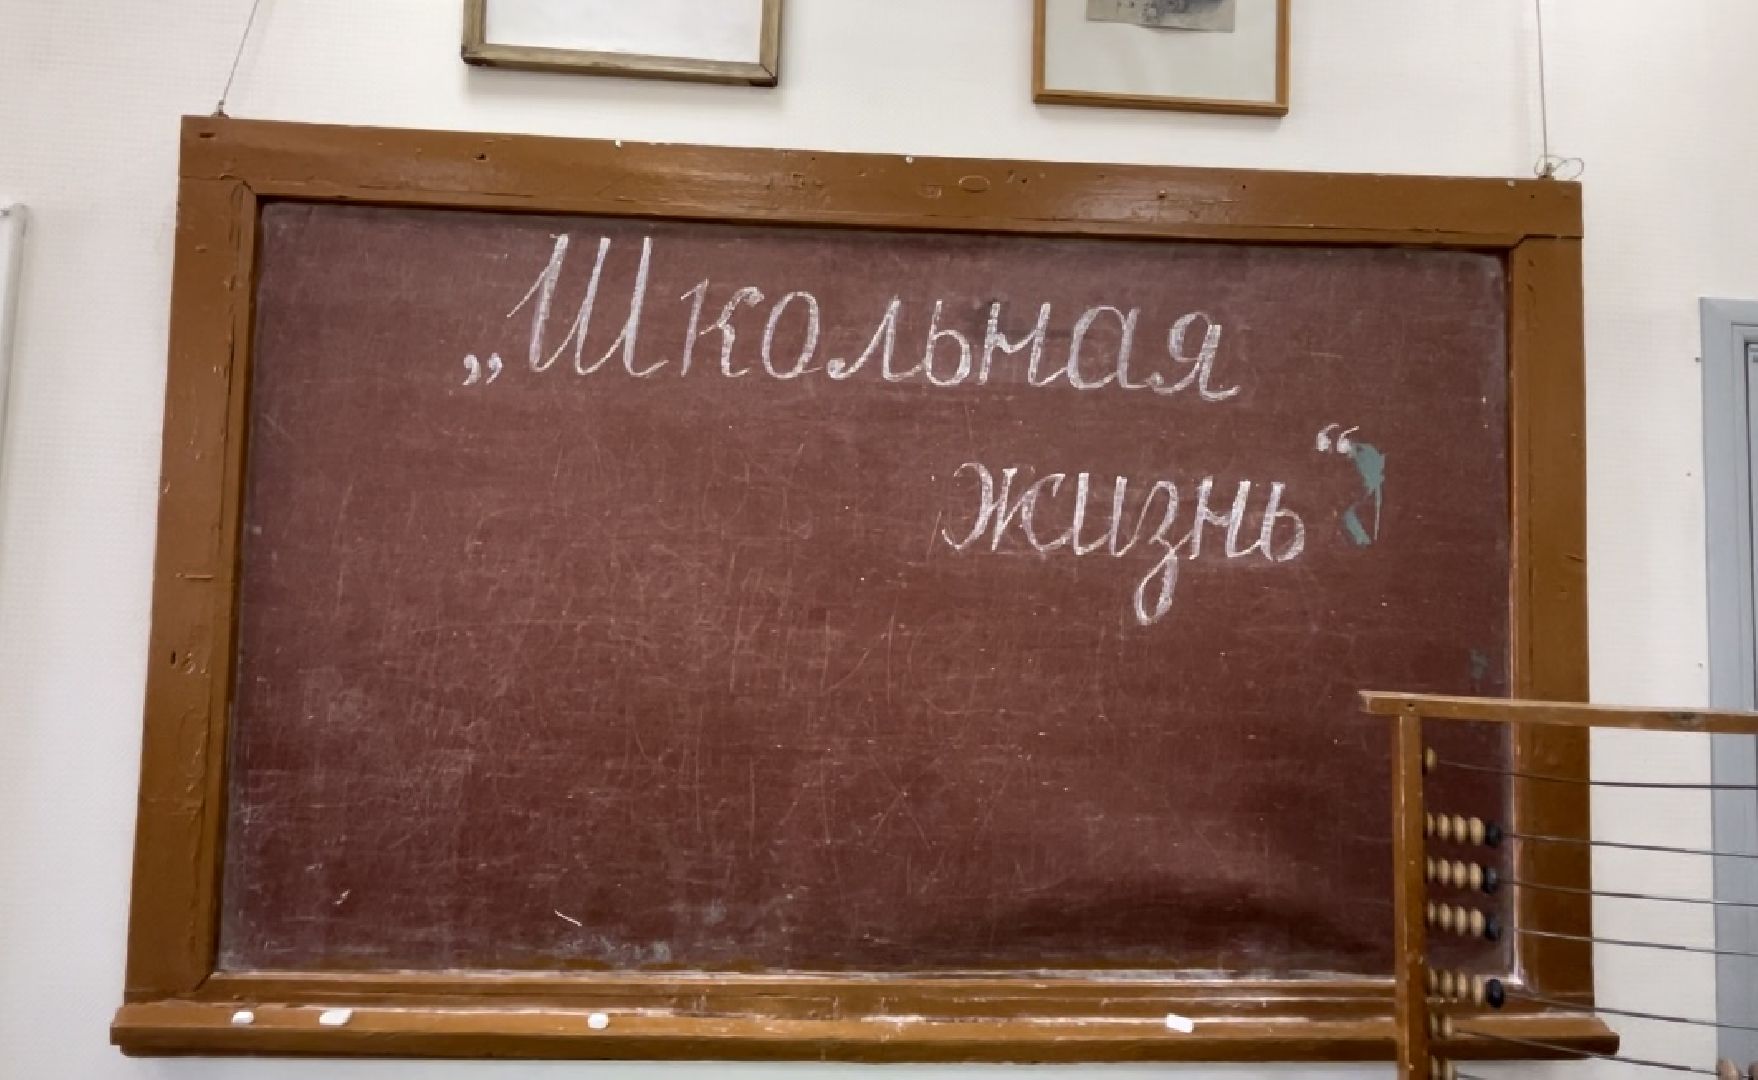 „Школьная
жизнь“